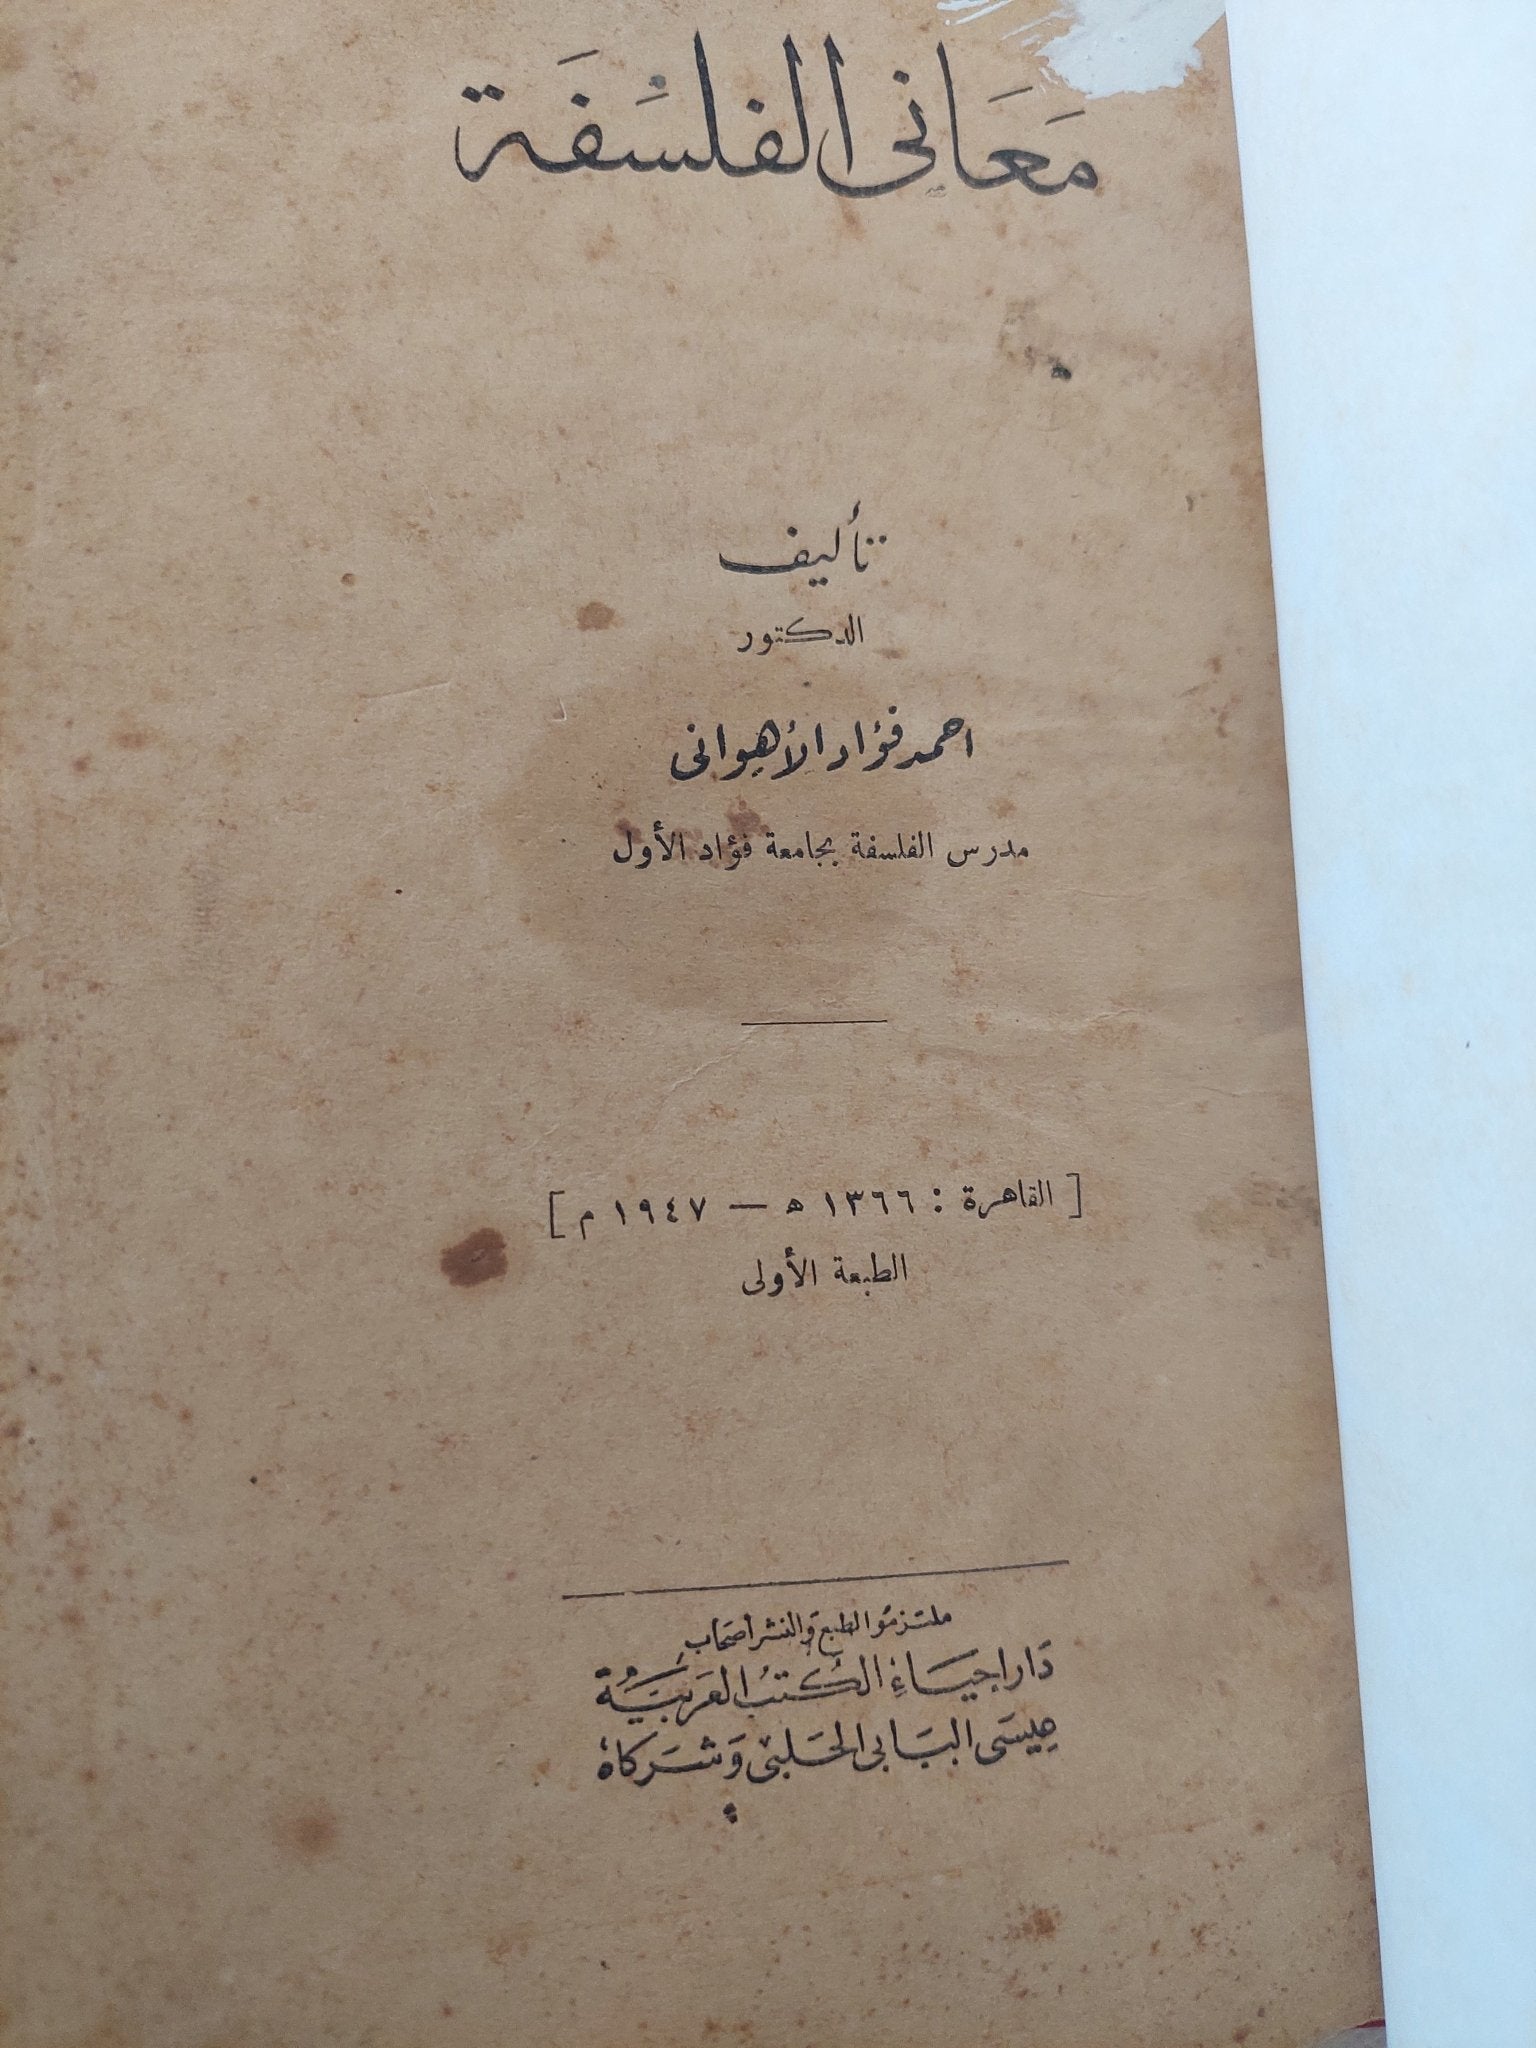 مَعَانى الفلسَفَة
تأليف
الدكتور
احمد فؤاد الأهوانى
مدرس الفلسفة بجامعة فؤاد الأول
[ القاهرة : ١٣٦٦ ه — ١٩٤٧ م ]
الطبعة الأولى
ملتزمو الطبع والنشر أصحاب
دَار احيَاءِ الكُتبُ العَربيَّة
عِيسَى البَابى الحَلبى وَشرَكاهُ